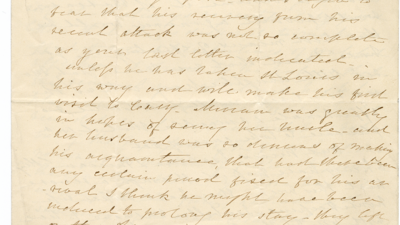 fear that his recovery from his
recent attack was not so complete
as your last letter indicated.
unless he was taken St Louis in
his way and will make his first
visit to Miriam was greatly
in hopes of seeing her uncle and
her husband was so desirous of making
his acquaintance, that had there been
any certain period fixed for his ar-
rival I think he might have been
induced to prolong his stay - they left